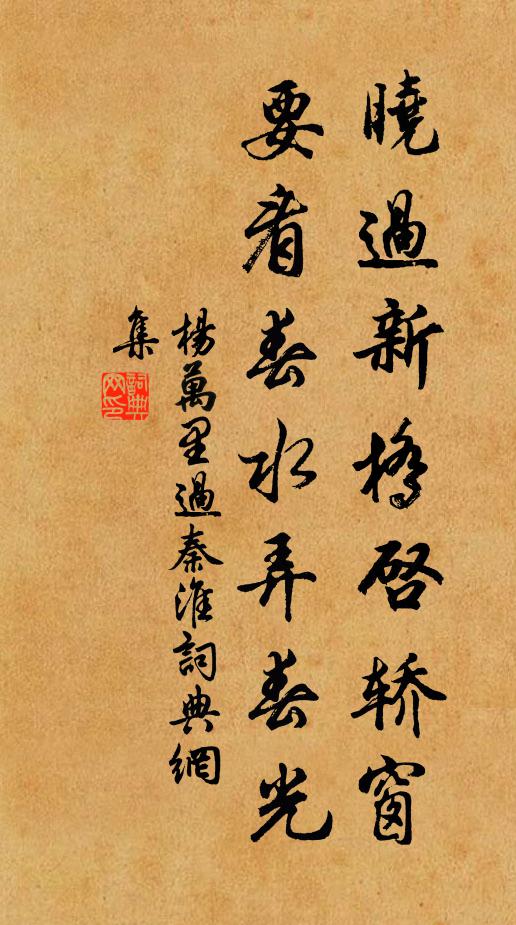 曉過新橋啓轿窗
要看春水弄春光
楊萬里過秦淮詞典網
集
詞典
网印